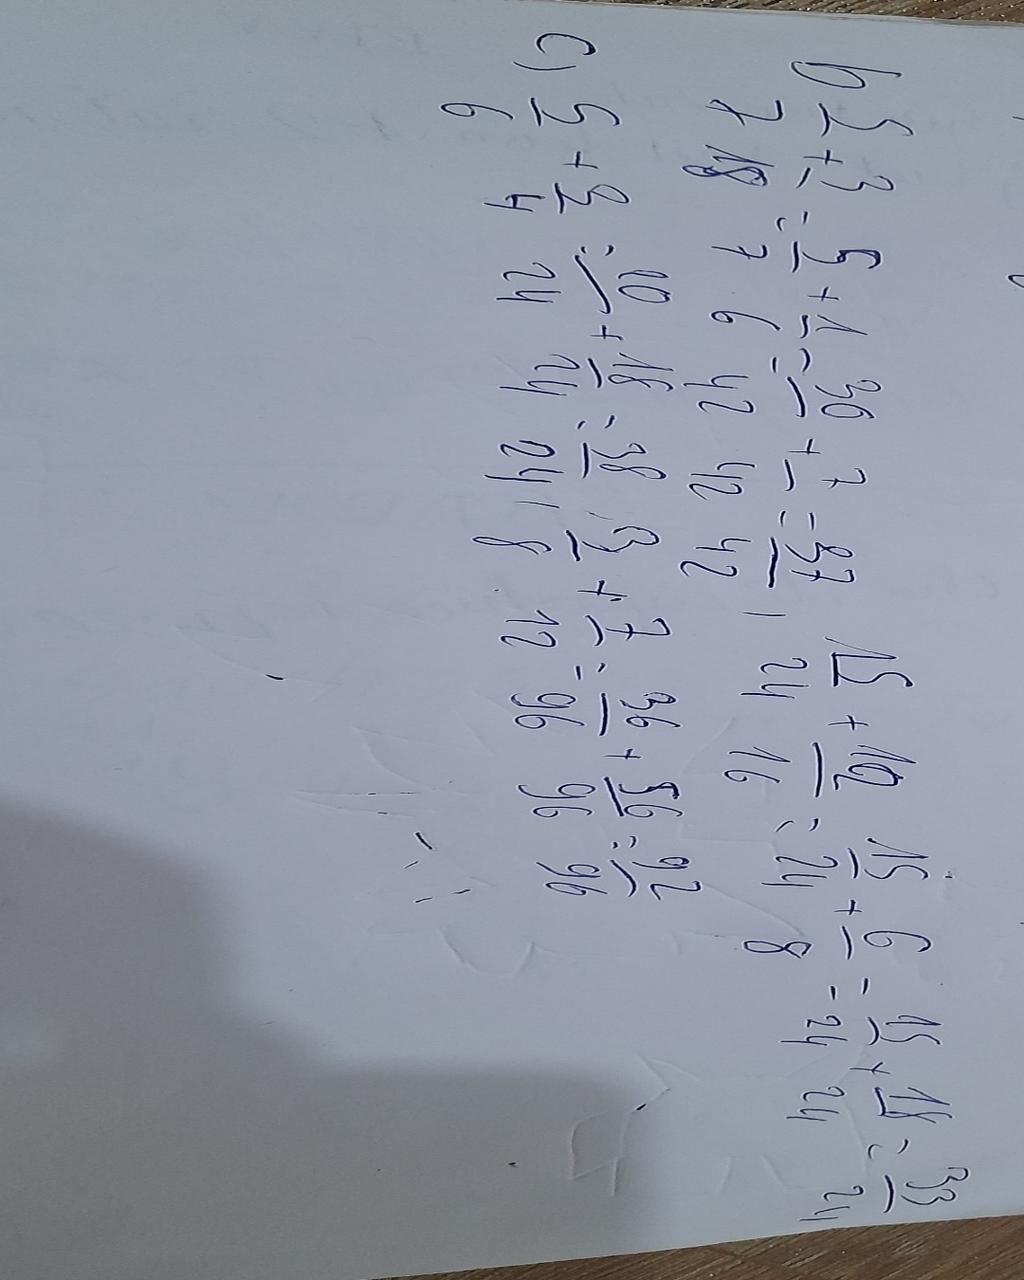 b) 5/7 + 3/18 = 5/7 + 1/6 = 30/42 + 7/42 = 37/42, 15/24 + 12/16 = 15/24 + 6/8 = 15/24 + 18/24 = 33/24
c) 5/6 + 3/4 = 10/24 + 18/24 = 38/24, 3/8 + 7/12 = 36/96 + 56/96 = 92/96